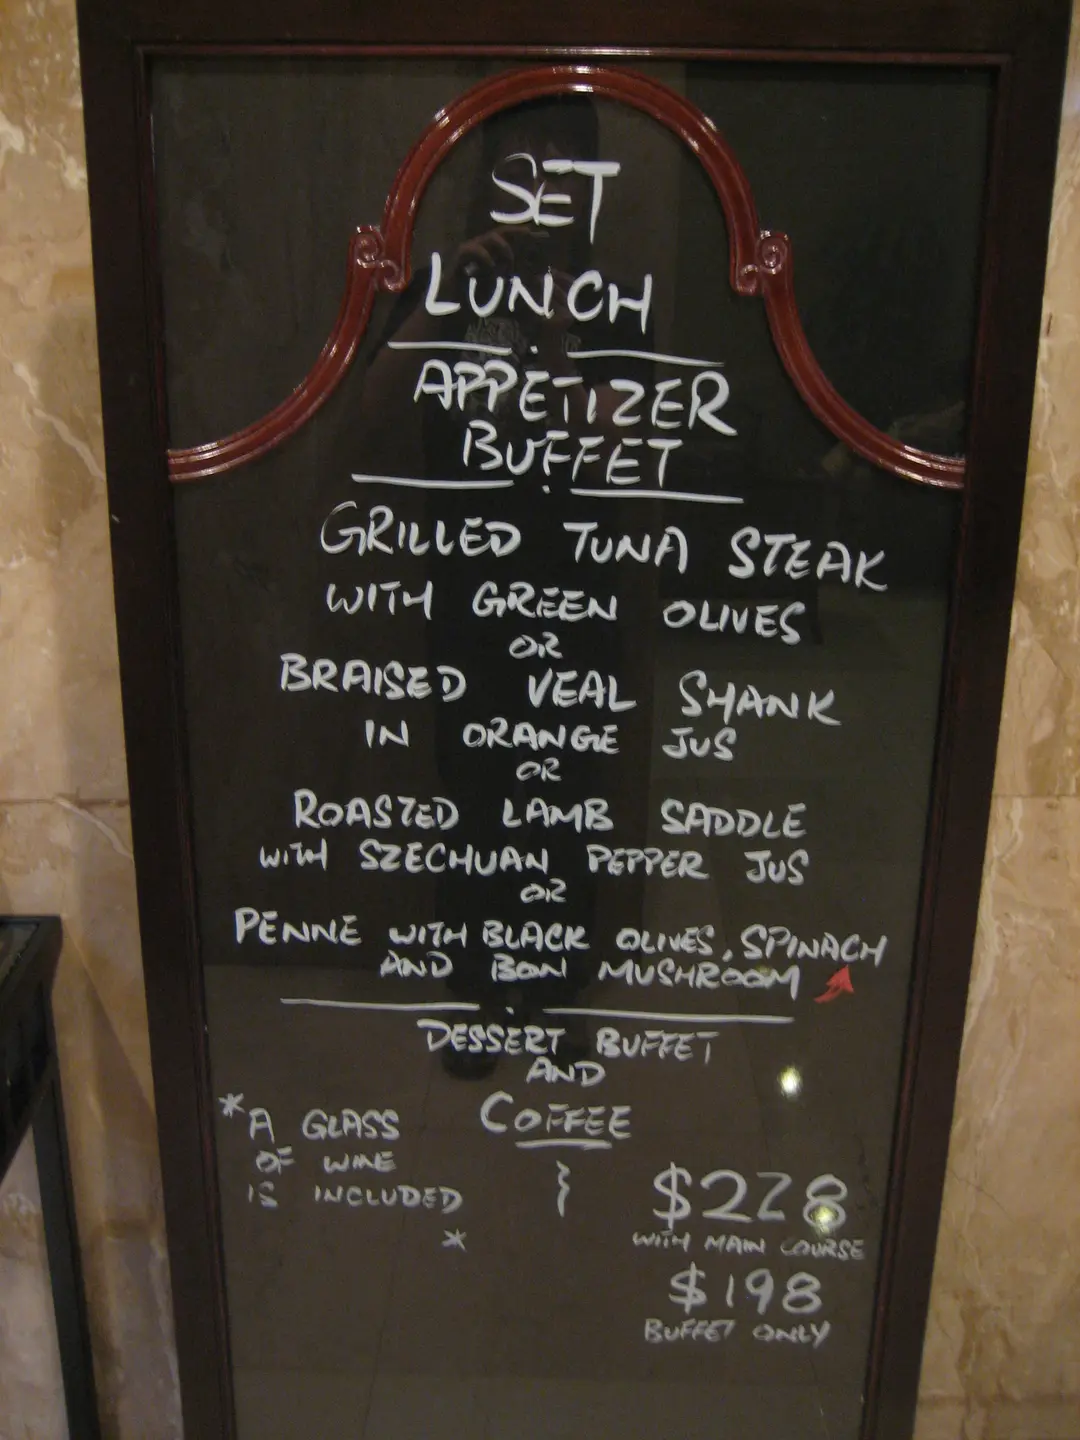 SET
LUNCH
APPETIZER
BUFFET
GRILLED TUNA STEAK
WITH GREEN OLIVES
OR
BRAISED VEAL SHANK
IN ORANGE JUS
OR
ROASTED LAMB SADDLE
WITH SZECHUAN PEPPER JUS
OR
PENNE WITH BLACK OLIVES, SPINACH
AND BON MUSHROOM
DESSERT BUFFET
AND
COFFEE
*A GLASS
OF WINE
IS INCLUDED
*
$228
WITH MAIN COURSE
$198
BUFFET ONLY